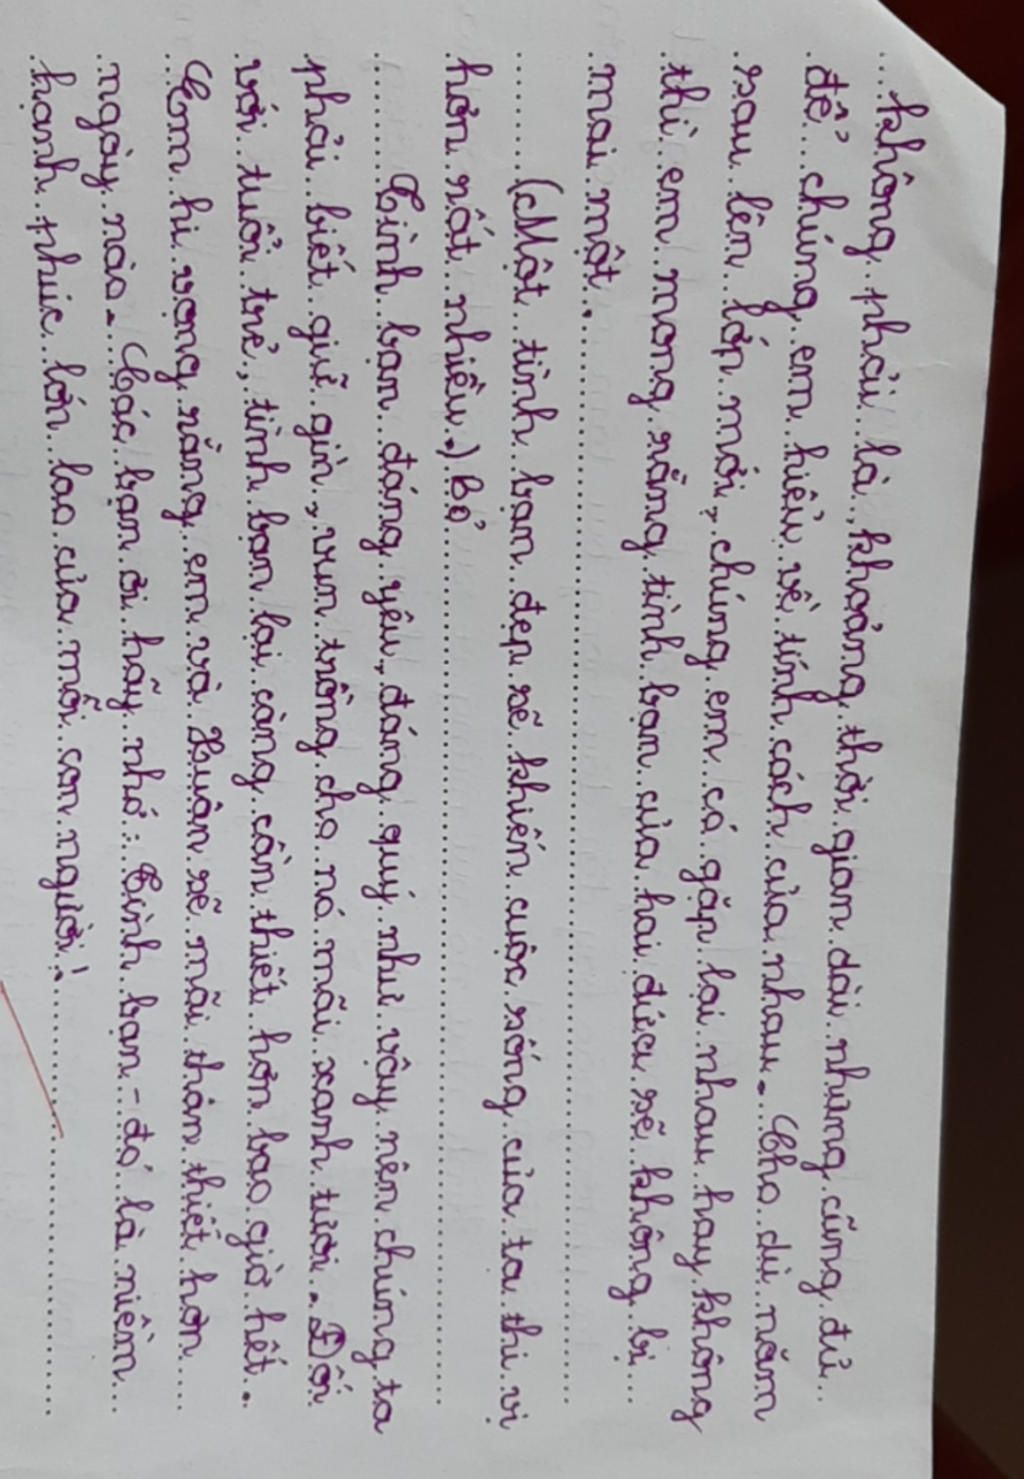 không phải là khoảng thời gian dài nhưng cũng đủ
để chúng em hiểu về tính cách của nhau. Cho dù năm
sau lên lớp mới, chúng em có gặp lại nhau hay không
thì em mong rằng tình bạn của hai đứa sẽ không bị
mai một.
(Một tình bạn đẹp sẽ khiến cuộc sống của ta thi vị
hơn rất nhiều.) Bỏ
Tình bạn đáng yêu, đáng quý như vậy nên chúng ta
phải biết giữ gìn, vun trồng cho nó mãi xanh tươi. Đối
với tuổi trẻ, tình bạn lại càng cần thiết hơn bao giờ hết.
Em hi vọng rằng em và Xuân sẽ mãi thân thiết hơn
ngày nào. Các bạn ơi hãy nhớ: Tình bạn - đó là niềm
hạnh phúc lớn lao của mỗi con người!